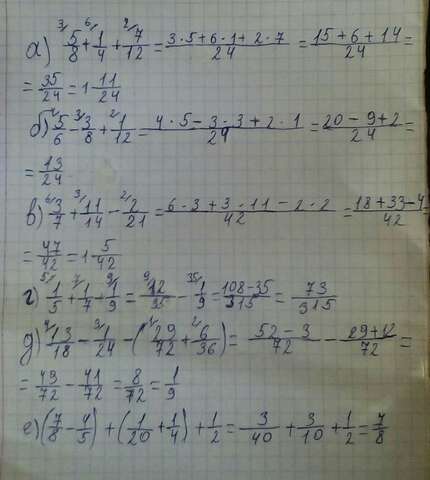 а) ³⁄5/8 + ⁶⁄1/4 + ²⁄7/12 = (3·5+6·1+2·7)/24 = (15+6+14)/24 =
= 35/24 = 1 11/24
б) ⁴⁄5/6 - ³⁄3/8 + ²⁄1/12 = (4·5-3·3+2·1)/24 = (20-9+2)/24 =
= 13/24
в) ⁶⁄3/7 + ³⁄11/14 - ²⁄2/21 = (6·3+3·11-2·2)/42 = (18+33-4)/42 =
= 47/42 = 1 5/42
г) 1/5 + ⁷⁄1/7 + 1/9 = ⁹⁄12/35 - ³⁵⁄1/9 = (108-35)/315 = 73/315
д) ⁴⁄13/18 - ³⁄1/24 - (¹⁄29/72 + ²⁄6/36) = (52-3)/72 - (29+12)/72 =
= 49/72 - 41/72 = 8/72 = 1/9
е) (7/8 - 4/5) + (1/20 + 1/4) + 1/2 = 3/40 + 3/10 + 1/2 = 7/8